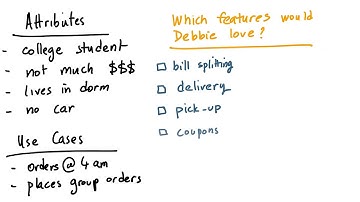 Attributes
- college student
- not much $$$
- lives in dorm
- no car
Use Cases
- orders @ 4 am
- places group orders
Which features would
Debbie love?
bill splitting
delivery
pick-up
coupons